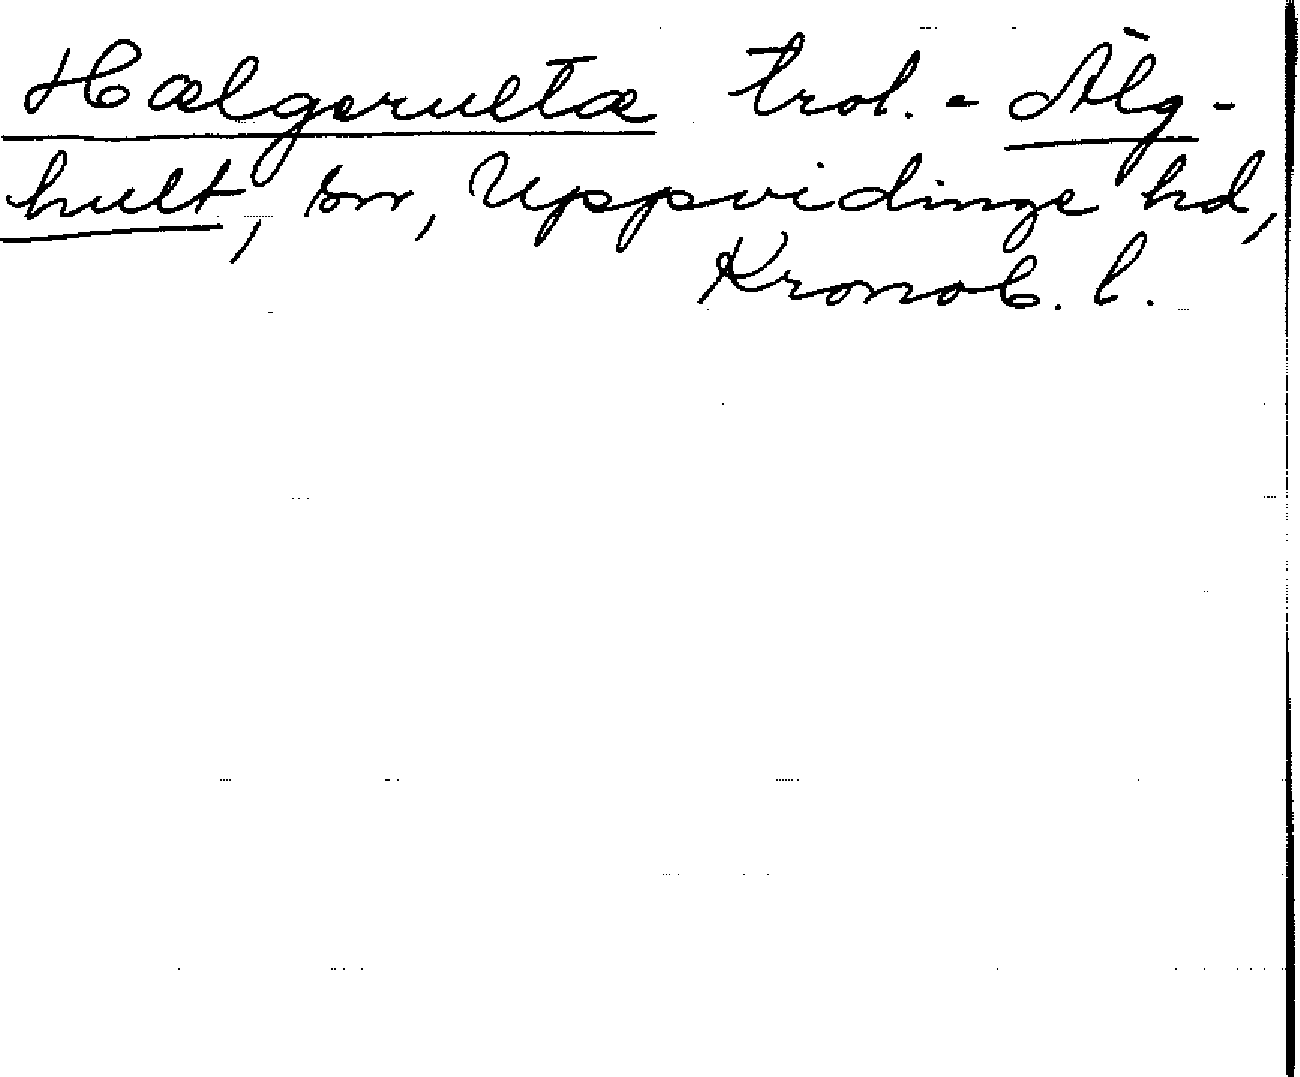 Hælgerultæ trol. = Älg-
hult, sn, Uppvidinge hd,
Kronob. l.